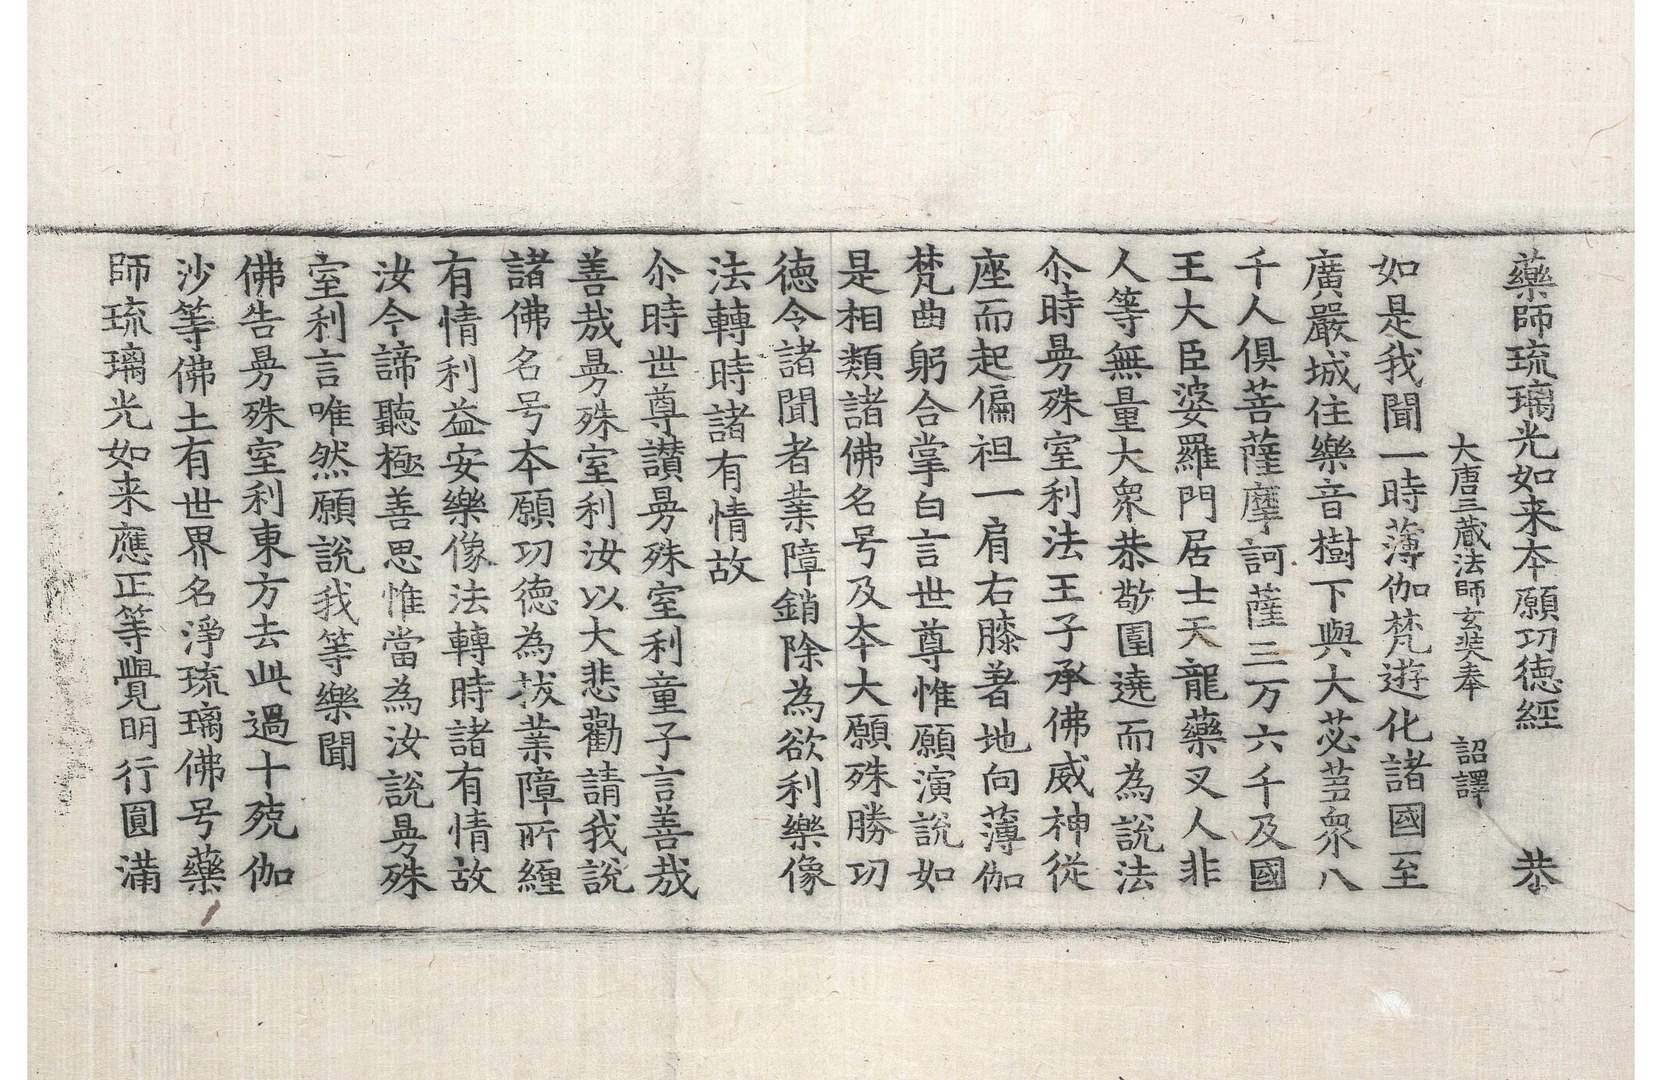 藥師琉璃光如来本願㓛德經 恭
大唐三藏法師玄奘奉 詔譯
如是我聞一時薄伽梵遊化諸國至
廣嚴城住樂音樹下與大苾蒭衆八
千人俱菩薩摩訶薩三万六千及國
王大臣婆羅門居士天龍藥叉人非
人等無量大衆恭敬圍遶而為說法
尒時曼殊室利法王子承佛威神從
座而起偏袒一肩右膝著地向薄伽
梵曲躬合掌白言世尊惟願演說如
是相類諸佛名号及本大願殊勝㓛
德令諸聞者業障銷除為欲利樂像
法轉時諸有情故
尒時世尊讃曼殊室利童子言善哉
善哉曼殊室利汝以大悲勸請我說
諸佛名号本願㓛德為拔業障所纏
有情利益安樂像法轉時諸有情故
汝今諦聽極善思惟當為汝說曼殊
室利言唯然願說我等樂聞
佛告曼殊室利東方去此過十殑伽
沙等佛土有世界名淨琉璃佛号藥
師琉璃光如来應正等覺明行圓滿